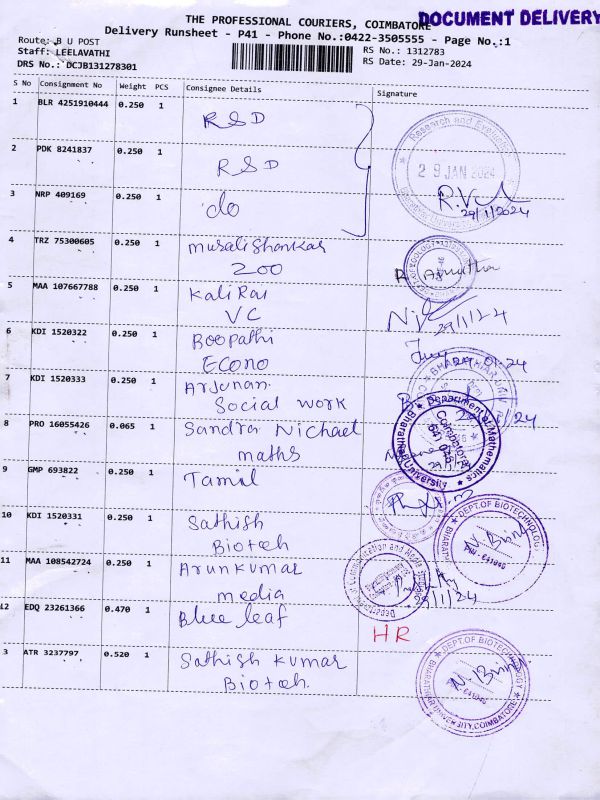 THE PROFESSIONAL COURIERS, COIMBATORE
DOCUMENT DELIVERY
Delivery Runsheet - P41 - Phone No.:0422-3505555 - Page No.:1
Route: B U POST
Staff: LEELAVATHI
DRS No.: DCJB131278301
RS No.: 1312783
RS Date: 29-Jan-2024
S No Consignment No Weight PCS Consignee Details Signature
1 BLR 4251910444 0.250 1 RSD
2 PDK 8241837 0.250 1 RSD
Research and
29 JAN 2024
3 NRP 409169 0.250 1 do
29/1/2024
4 TRZ 75300605 0.250 1 Muralishankar
200
5 MAA 107667788 0.250 1 Kali Raj
VC
29/1/24
6 KDI 1520322 0.250 1 Boopathi
Econo
7 KDI 1520333 0.250 1 Arjunan
Social work
8 PRO 16055426 0.065 1 Sandra Nichael
maths
Department of Mathematics
Bharathiar University
Coimbatore
641 046
9 GMP 693822 0.250 1 Tamil
10 KDI 1520331 0.250 1 Sathish
Biotech
DEPT.OF BIOTECHNOLOGY
11 MAA 108542724 0.250 1 Arunkumar
media
29/1/24
12 EDQ 23261366 0.470 1 Blue leaf
HR
3 ATR 3237797 0.520 1 Sathish Kumar
Biotech
DEPT.OF BIOTECHNOLOGY
BHARATHIAR UNIVERSITY, COIMBATORE